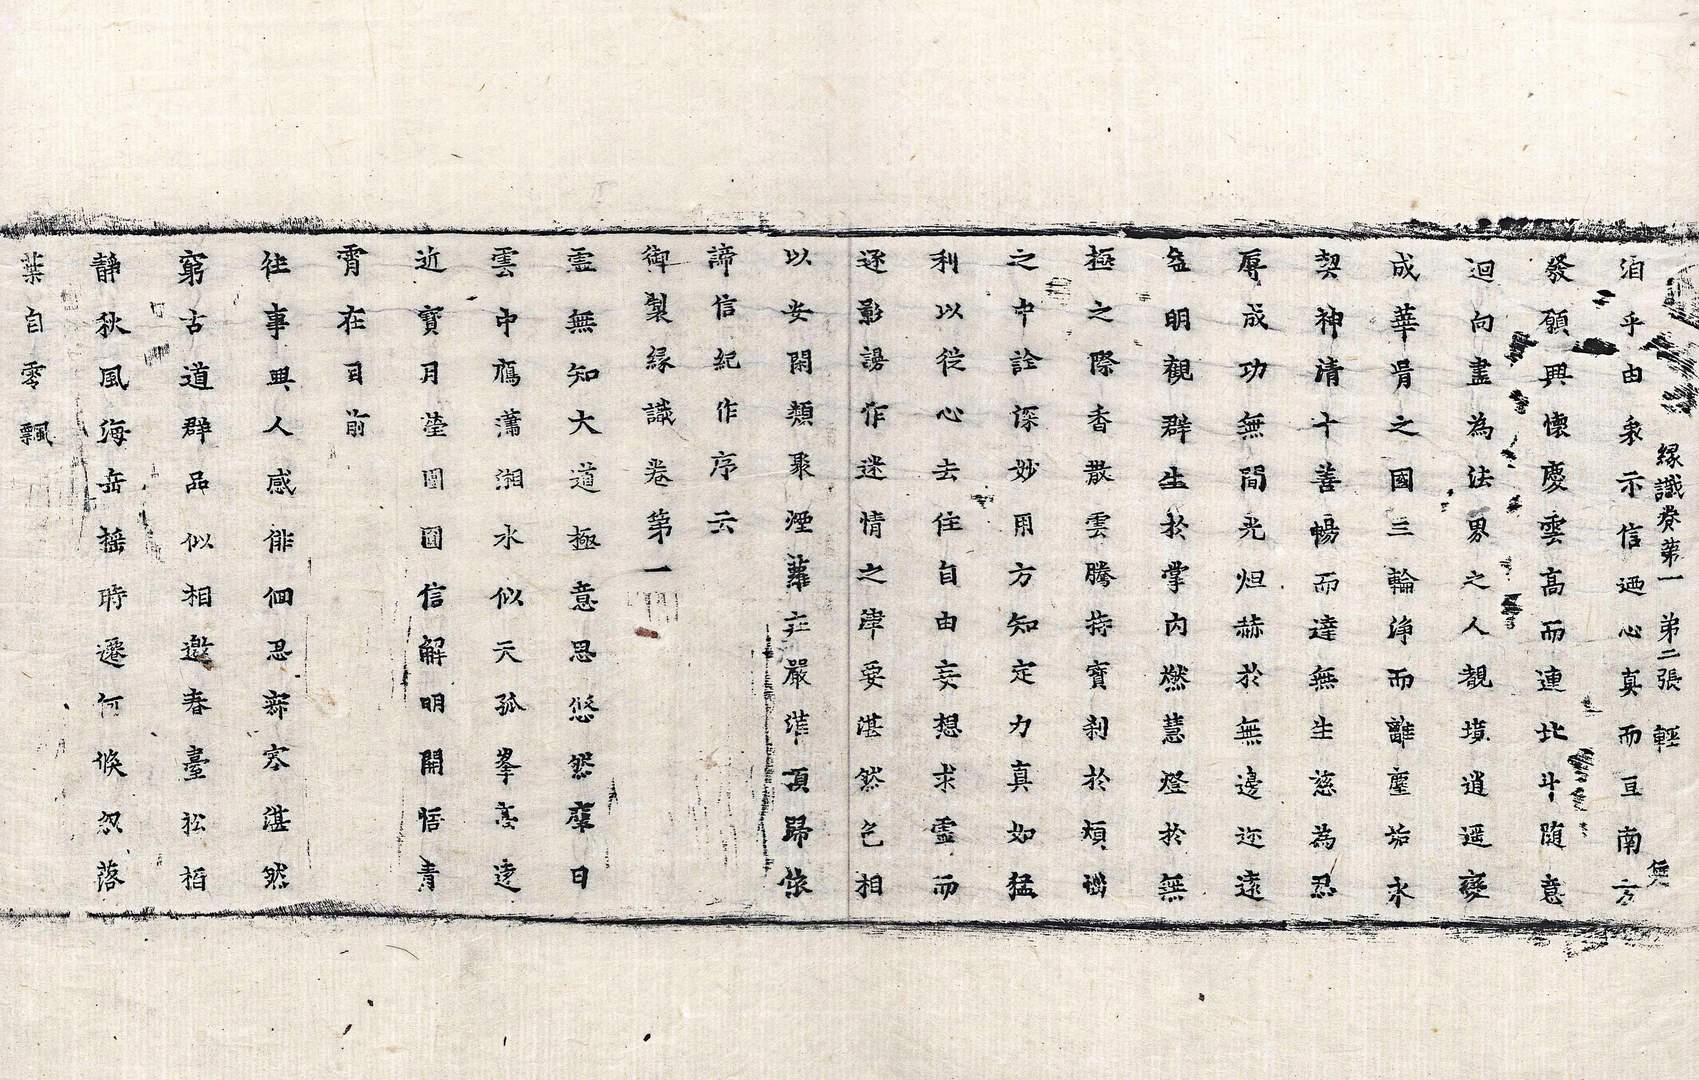 緣識卷第一 第二張 輕
洎乎由衆示信迺心真而亘南方
發願興懷慶雲高而連北斗隨意
迴向盡為法界之人覩境逍遥變
成華胥之國三輪淨而離塵垢永
契神清十善暢而達無生慈為忍
辱成功無間光烜赫於無邊迩遠
益明觀群生於掌內燃慧燈於無
極之際香散雲騰持寶刹於煩惱
之中詮深妙用方知定力真如猛
利以從心去住自由妄想求靈而
逐影謾作迷情之津要湛然色相
以安閑類聚煙蘿莊嚴灌頂歸依
諦信紀作序云
御製緣識卷第一
靈無知大道極意思悠然羣日
雲中鴈瀟湘水似天孤峯高遠
近寶月瑩團圓信解明開悟青
霄在目前
往事興人感俳佪忍寂寥湛然
窮古道群品似相邀春臺松栢
靜秋風海岳搖時遷何倏忽落
葉自零飄